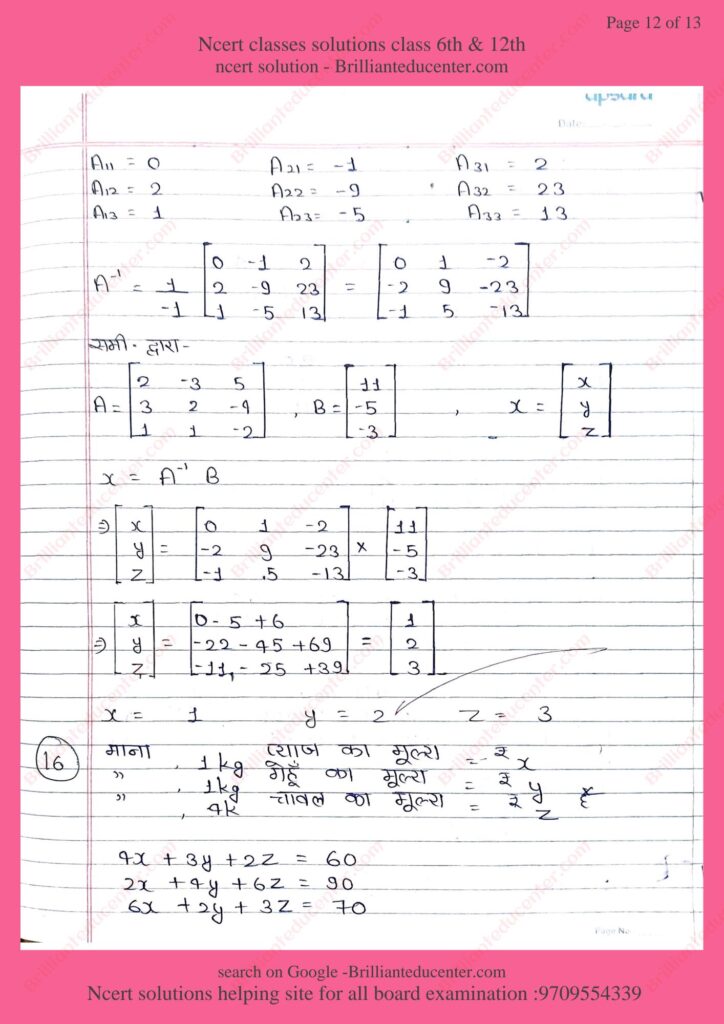 Page 12 of 13
Ncert classes solutions class 6th & 12th
ncert solution - Brillianteducenter.com
Date:
A11 = 0 A21 = -1 A31 = 2
A12 = 2 A22 = -9 A32 = 23
A13 = 1 A23 = -5 A33 = 13
0 -1 2 0 1 -2
A⁻¹ = 1/-1 [2 -9 23] = [-2 9 -23]
1 -5 13 -1 5 -13
समी. द्वारा -
2 -3 5 11 x
A = [3 2 -4] , B = [-5] , x = [y]
1 1 -2 -3 z
x = A⁻¹ B
x 0 1 -2 11
⇒ [y] = [-2 9 -23] × [-5]
z -1 5 -13 -3
x 0 - 5 + 6 1
⇒ [y] = [-22 - 45 + 69] = [2]
z -11, - 25 + 39 3
x = 1 y = 2 z = 3
16 माना , 1 kg प्याज का मूल्य = ₹ x
" , 1 kg गेहूँ का मूल्य = ₹ y
" , 4k चावल का मूल्य = ₹ z
4x + 3y + 2z = 60
2x + 4y + 6z = 90
6x + 2y + 3z = 70
Page No.
search on Google -Brillianteducenter.com
Ncert solutions helping site for all board examination :9709554339